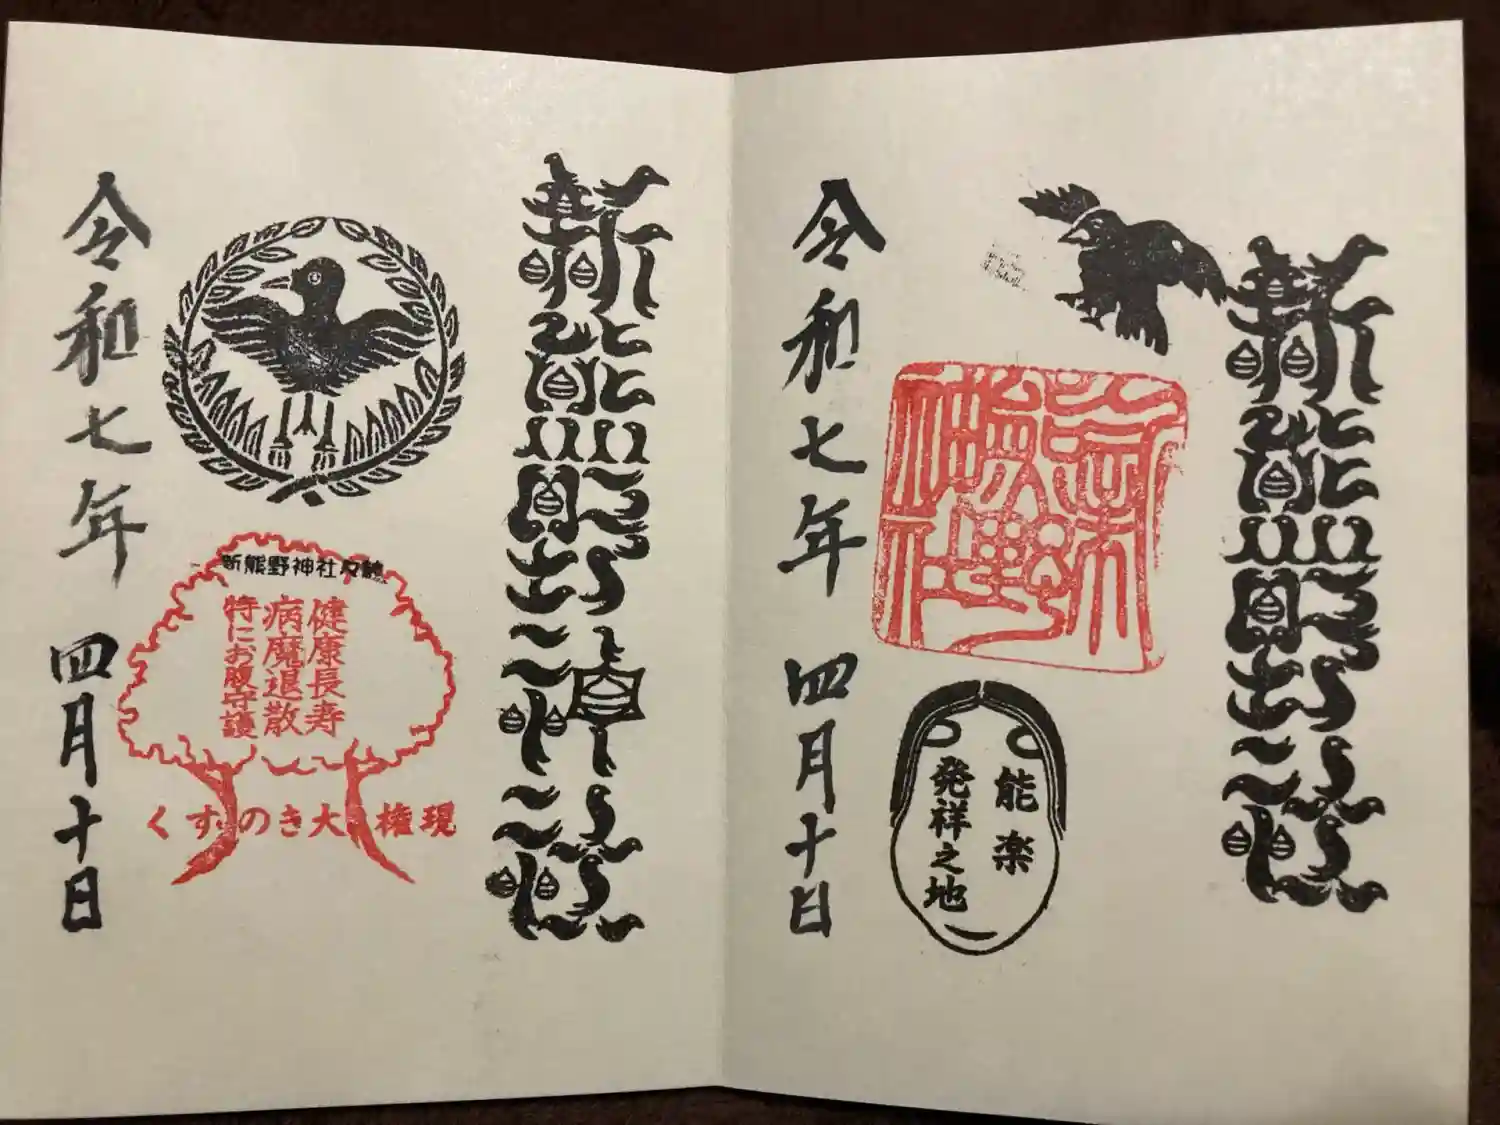 新熊野社
能楽
発祥之地
令和七年 四月十日
新熊野神社
新熊野神社
健康長寿
病魔退散
特にお腹守護
くすのき大権現
令和七年 四月十日